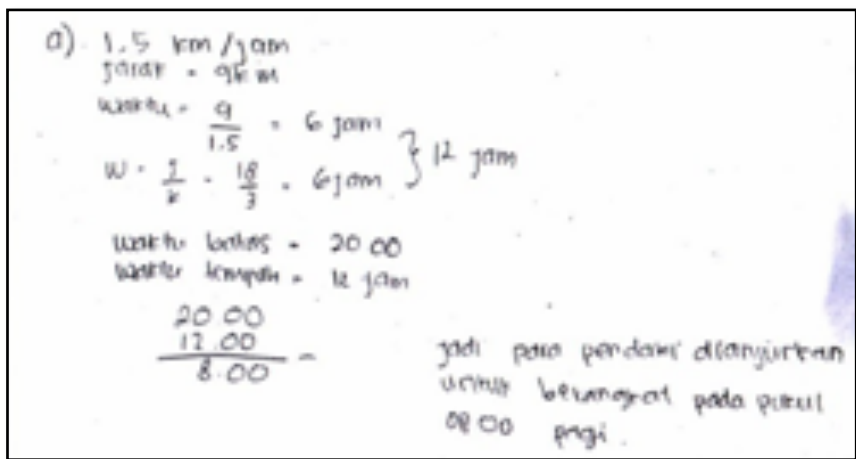 a). 1.5 km/jam
jarak = 9km
waktu = 9/1.5 = 6 jam
} 12 jam
W = J/k = 18/3 = 6 jam
waktu batas = 20.00
waktu tempuh = 12 jam
20.00
12.00
8.00
jadi para pendaki dianjurkan
untuk berangkat pada pukul
08.00 pagi.